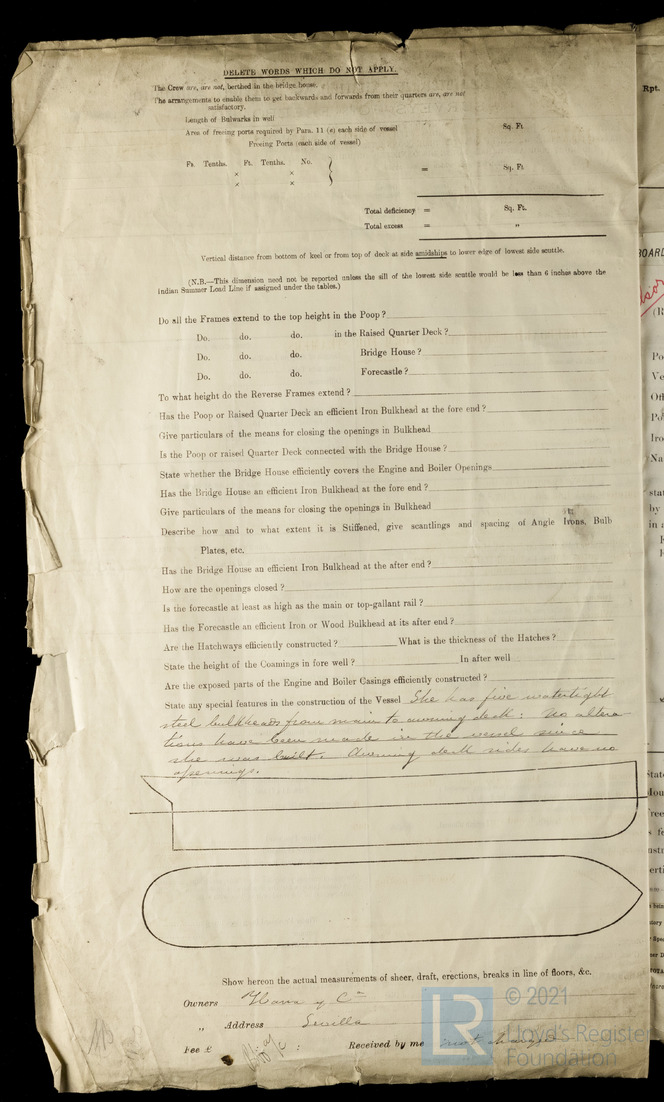 DELETE WORDS WHICH DO NOT APPLY.
The Crew are, are not, berthed in the bridge house.
The arrangements to enable them to get backwards and forwards from their quarters are, are not
satisfactory.
Length of Bulwarks in well
Area of freeing ports required by Para. 11 (e) each side of vessel Sq. Ft
Freeing Ports (each side of vessel)
Ft. Tenths. Ft. Tenths. No.
× × = Sq. Ft
× ×
Total deficiency = Sq. Ft.
Total excess = "
Vertical distance from bottom of keel or from top of deck at side amidships to lower edge of lowest side scuttle.
(N.B.—This dimension need not be reported unless the sill of the lowest side scuttle would be less than 6 inches above the
Indian Summer Load Line if assigned under the tables.)
Do all the Frames extend to the top height in the Poop?
Do. do. do. in the Raised Quarter Deck?
Do. do. do. Bridge House?
Do. do. do. Forecastle?
To what height do the Reverse Frames extend?
Has the Poop or Raised Quarter Deck an efficient Iron Bulkhead at the fore end?
Give particulars of the means for closing the openings in Bulkhead
Is the Poop or raised Quarter Deck connected with the Bridge House?
State whether the Bridge House efficiently covers the Engine and Boiler Openings
Has the Bridge House an efficient Iron Bulkhead at the fore end?
Give particulars of the means for closing the openings in Bulkhead
Describe how and to what extent it is Stiffened, give scantlings and spacing of Angle Irons, Bulb
Plates, etc.
Has the Bridge House an efficient Iron Bulkhead at the after end?
How are the openings closed?
Is the forecastle at least as high as the main or top-gallant rail?
Has the Forecastle an efficient Iron or Wood Bulkhead at its after end?
Are the Hatchways efficiently constructed? What is the thickness of the Hatches?
State the height of the Coamings in fore well? In after well
Are the exposed parts of the Engine and Boiler Casings efficiently constructed?
State any special features in the construction of the Vessel She has five watertight
steel bulkheads from main to awning deck: No altera-
tions have been made in the vessel since
she was built. Awning deck sides have no
openings.
Show hereon the actual measurements of sheer, draft, erections, breaks in line of floors, &c.
Owners y Cª
" Address Sevilla
Fee £ : Received by me
© 2021
LR Lloyd's Register
Foundation
Rpt.